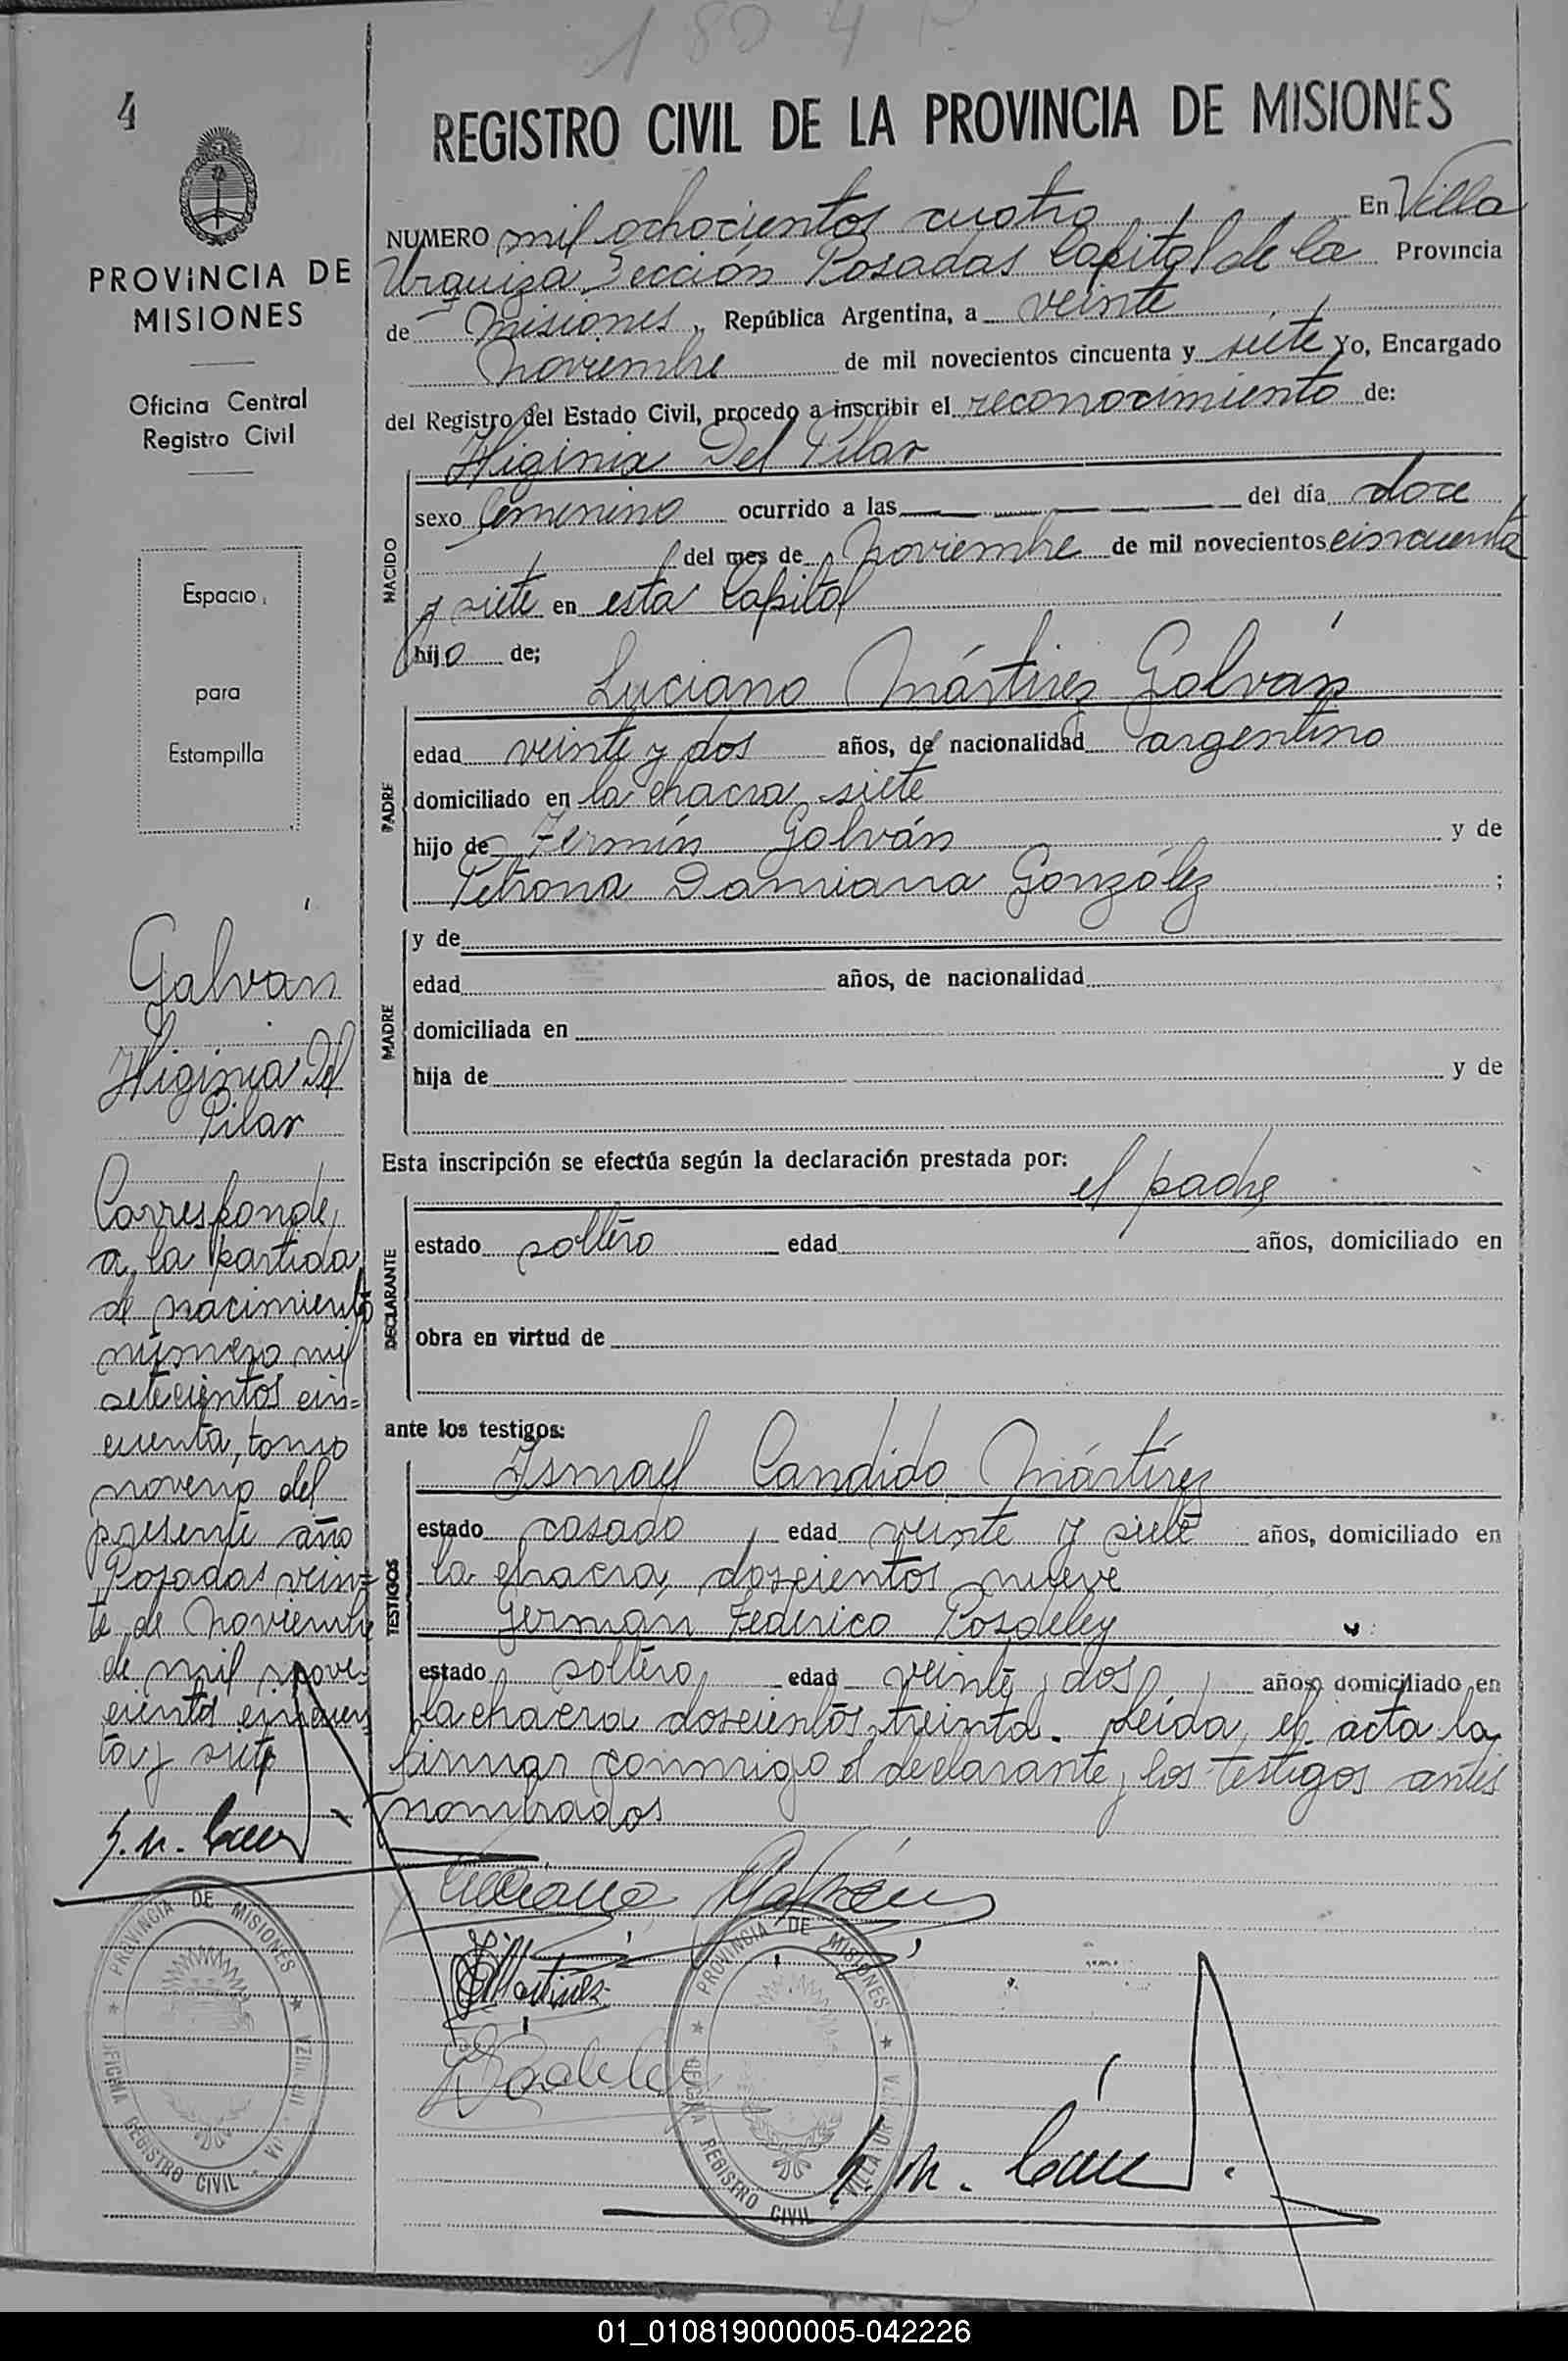 1804
4
REGISTRO CIVIL DE LA PROVINCIA DE MISIONES
PROVINCIA DE
MISIONES
Oficina Central
Registro Civil
Espacio
para
Estampilla
Galván
Higinia Del
Pilar
Corresponde
a la partida
de nacimiento
número mil
setecientos cin=
cuenta, tomo
noveno del
presente año
Posadas vein=
te de Noviembre
de mil nove=
cientos cincuen
ta y siete
NUMERO mil ochocientos cuatro En Villa
Urquiza Sección Posadas Capital de la Provincia
de Misiones, República Argentina, a veinte
Noviembre de mil novecientos cincuenta y siete Yo, Encargado
del Registro del Estado Civil, procedo a inscribir el reconocimiento de:
Higinia Del Pilar
NACIDO
sexo femenino ocurrido a las del día doce
del mes de Noviembre de mil novecientos cincuenta
y siete en esta Capital
hijo de;
Luciano Mártirez Galván
PADRE
edad veinte y dos años, de nacionalidad argentino
domiciliado en la chacra siete
hijo de Fermín Galván y de
Petrona Damiana González ;
MADRE
y de
edad años, de nacionalidad
domiciliada en
hija de y de
Esta inscripción se efectúa según la declaración prestada por:
el padre
DECLARANTE
estado soltero edad años, domiciliado en
obra en virtud de
ante los testigos:
Ismael Candido Mártirez
TESTIGOS
estado casado edad veinte y siete años, domiciliado en
la chacra doscientos nueve
Germán Federico Posdeley
estado soltero edad veinte y dos años domiciliado en
la chacra doscientos treinta. Leída el acta la
firman conmigo el declarante y los testigos antes
nombrados
Luciano Galván
Martinez
PROVINCIA DE MISIONES
OFICINA REGISTRO CIVIL
VILLA URQUIZA
PROVINCIA DE MISIONES
OFICINA REGISTRO CIVIL
VILLA URQUIZA
01_010819000005-042226